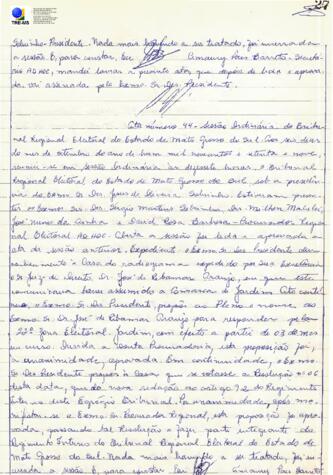 TRE-MS
27
Sobrinho - Presidente. Nada mais havendo a ser tratado, foi encerrada
a sessão. E, para constar, Eu Amaury Pires Barreto - Secretá-
rio AD HOC, mandei lavrar a presente ata que depois de lida e aprova-
da vai assinada pelo Exmo. Sr. Des. Presidente.
Ata número 44 - Sessão Ordinária do Tribu-
nal Regional Eleitoral do Estado de Mato Grosso do Sul. Aos seis dias
do mês de setembro do ano de hum mil novecentos e setenta e nove,
reuniu-se em sessão ordinária às dezessete horas, o Tribunal
Regional Eleitoral do Estado de Mato Grosso do Sul sob a presidên-
cia do Exmo. Sr. Des. Jesus de Oliveira Sobrinho. Estiveram presen-
tes os Exmos. Srs. Drs. Milton
José Nunes da Cunha e David Rosa Barbosa - Procurador Regional
Eleitoral AD HOC. Aberta a sessão foi lida e aprovada a
ata da sessão anterior. Expediente: O Exmo. Sr. Des. Presidente deu
conhecimento à Casa do radiograma expedido por Sua Excelência
o Sr. Juiz de Direito, Dr. José de Ribamar Araujo, em que este
comunicava haver assumido a Comarca de Jardim. Ato contí-
nuo, o Exmo. Sr. Des. Presidente, propôs ao Pleno o nome do
Exmo. Sr. Dr. José de Ribamar Araujo para responder pela
22ª Zona Eleitoral, Jardim, com efeito a partir de 03 de mês
em curso. Ouvida a Douta Procuradoria, esta proposição foi
à unanimidade, aprovada. Em continuidade, o Exmo.
Sr. Des. Presidente propôs à Casa que se votasse a Resolução nº 06
desta data, que dá nova redação ao artigo 92 do Regimento
Interno deste Egrégio Tribunal. Por unanimidade, após mani-
festar-se o Exmo. Sr. Procurador Regional, esta proposição foi apro-
vada, passando tal Resolução a fazer parte integrante do
Regimento Interno do Tribunal Regional Eleitoral do Estado de
Mato Grosso do Sul. Nada mais havendo a ser tratado, foi en-
cerrada a sessão. E, para constar, Eu Amaury Pires Barreto